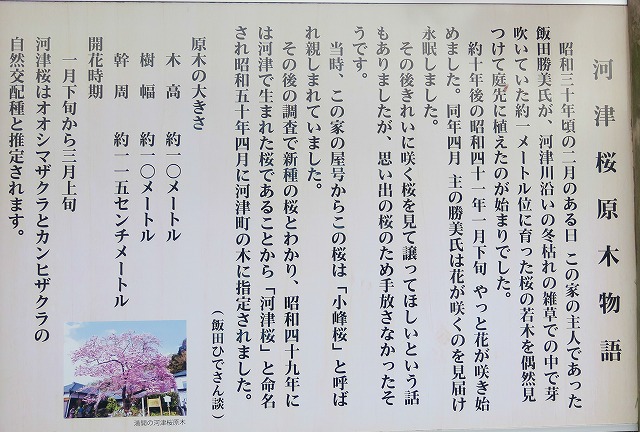 河津桜原木物語
昭和三十年頃の二月のある日 この家の主人であった
飯田勝美氏が、河津川沿いの冬枯れの雑草での中で芽
吹いていた約一メートル位に育った桜の若木を偶然見
つけて庭先に植えたのが始まりでした。
約十年後の昭和四十一年一月下旬 やっと花が咲き始
めました。同年四月 主の勝美氏は花が咲くのを見届け
永眠しました。
その後きれいに咲く桜を見て譲ってほしいという話
もありましたが、思い出の桜のため手放さなかったそ
うです。
当時、この家の屋号からこの桜は「小峰桜」と呼ば
れ親しまれていました。
その後の調査で新種の桜とわかり、昭和四十九年に
は河津で生まれた桜であることから「河津桜」と命名
され昭和五十年四月に河津町の木に指定されました。
（飯田ひでさん談）
原木の大きさ
木 高 約一〇メートル
樹 幅 約一〇メートル
幹 周 約一一五センチメートル
開花時期
一月下旬から三月上旬
河津桜はオオシマザクラとカンヒザクラの
自然交配種と推定されます。
満開の河津桜原木